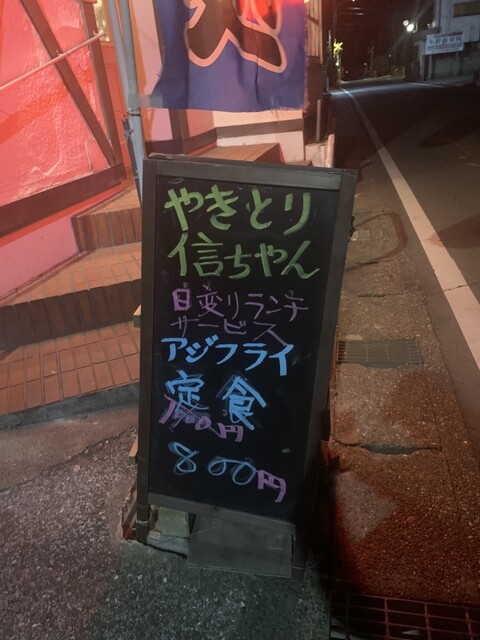 やきとり
信ちゃん
日変りランチ
サービス
アジフライ
定食
1000円
800円